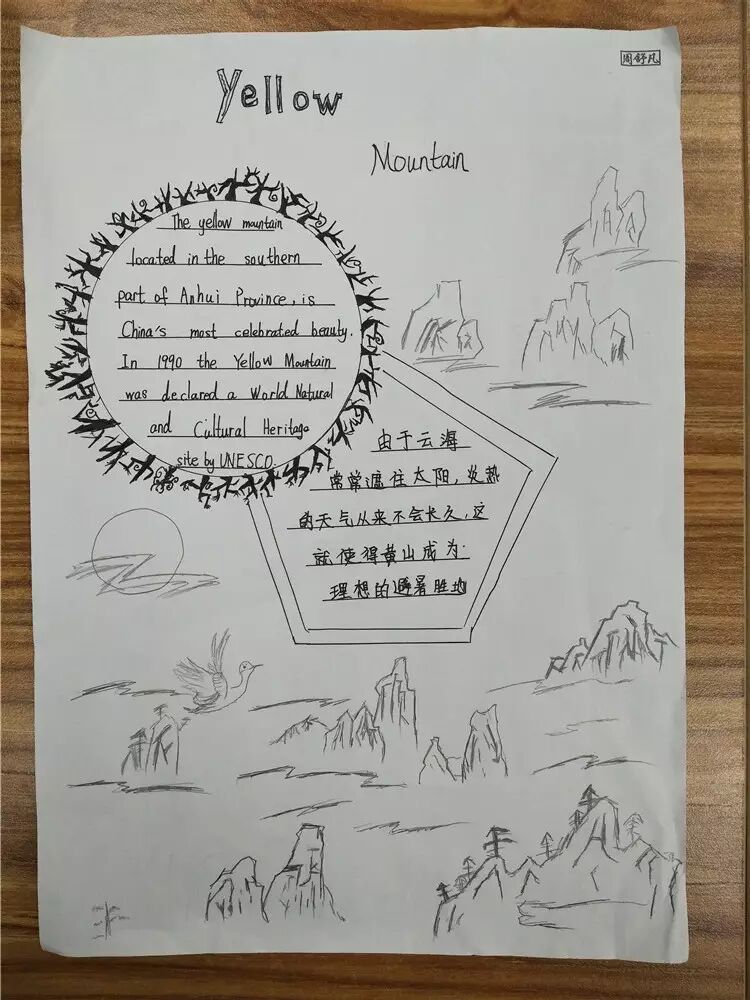 周舒凡
Yellow
Mountain
The yellow mountain
located in the southern
part of Anhui Province, is
China's most celebrated beauty.
In 1990 the Yellow Mountain
was declared a World Natural
and Cultural Heritage
site by UNESCO.
由于云海
常常遮住太阳，炎热
的天气从来不会长久，这
就使得黄山成为
理想的避暑胜地